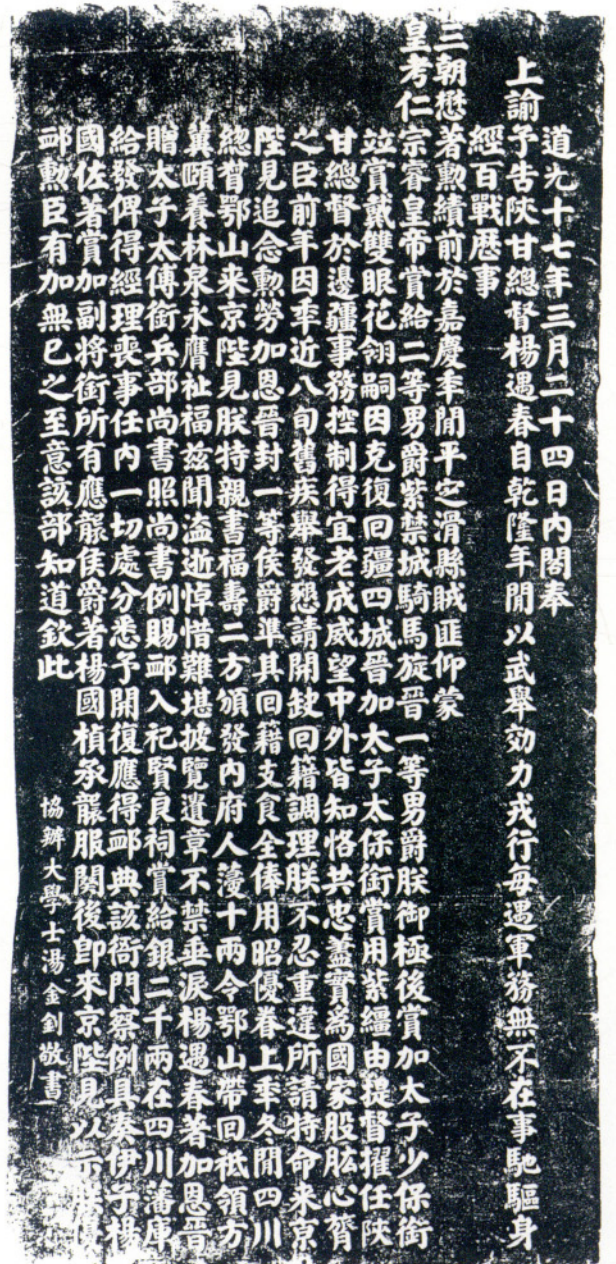 道光十七年三月二十四日内閣奉
上諭予告陝甘總督楊遇春自乾隆年間以武舉効力戎行每遇軍務無不在事馳驅身
經百戰歷事
三朝懋著勳績前於嘉慶年間平定滑縣賊匪仰蒙
皇考仁宗睿皇帝賞給二等男爵紫禁城騎馬旋晉一等男爵朕御極後賞加太子少保銜
竝賞戴雙眼花翎嗣因克復回疆四城晉加太子太保銜賞用紫韁由提督擢任陝
甘總督於邊疆事務控制得宜老成威望中外皆知恪共忠藎實爲國家股肱心膂
之臣前年因年近八旬舊疾舉發懇請開缺回籍調理朕不忍重違所請特命来京
陛見追念勳勞加恩晉封一等侯爵準其回籍支食全俸用昭優眷上年冬間四川
總督鄂山来京陛見朕特親書福壽二方頒發内府人葠十兩令鄂山帶回祗領方
冀頤養林泉永膺祉福兹聞溘逝悼惜難堪披覽遺章不禁垂淚楊遇春著加恩晉
贈太子太傅銜兵部尚書照尚書例賜卹入祀賢良祠賞給銀二千兩在四川藩庫
給發俾得經理喪事任内一切處分悉予開復應得卹典該衙門察例具奏伊子楊
國佐著賞加副將銜所有應襲侯爵著楊國楨承襲服闋後卽來京陛見以示優
卹勳臣有加無已之至意該部知道欽此
協辦大學士湯金釗敬書